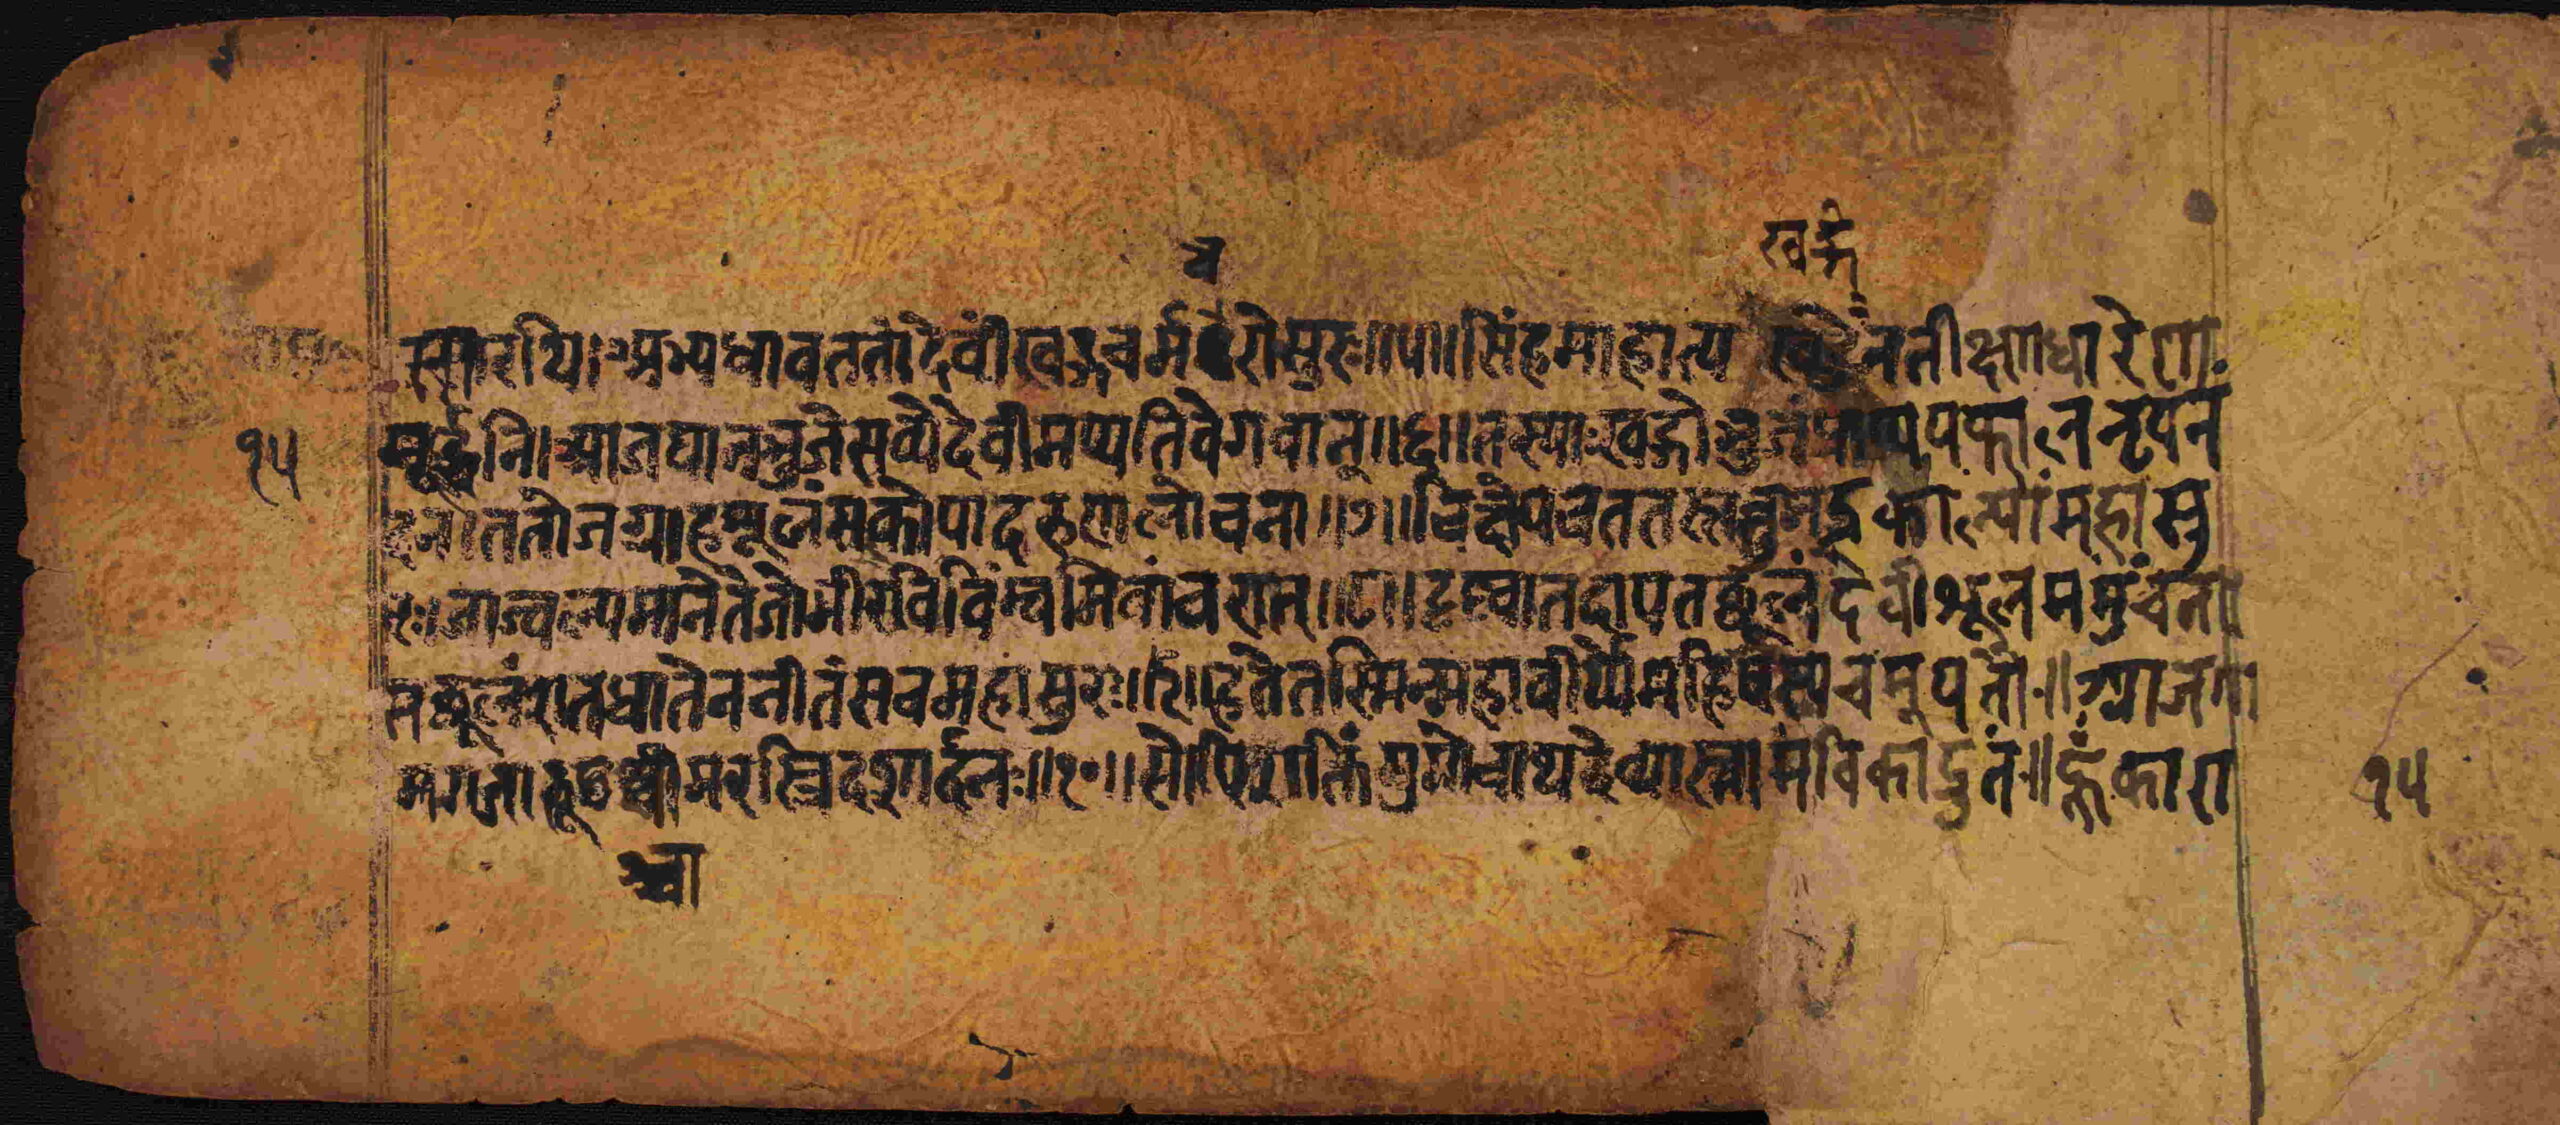 च
खड्गे
सारथि। अभ्यधावततां देवीं खड्गचर्म रोसुरः॥५॥सिंहमाहात्य खड्गेनतीक्ष्णधारेण
१५ मूर्द्धनि।आजघानभुजेसव्येदेवीमप्यतिवेगवान्॥६॥तस्याःखड्गोभुजंप्राप्यपफालनृपनं
दन।ततोजग्राहशूलंसकोपादरुणलोचनः॥७॥चिक्षेपचततस्तत्तुभद्रकाल्यांमहासु
रः।जाज्वल्यमानंतेजोभीरविविंम्बमिवांवरात्॥८॥दृष्ट्वातदापतच्छूलंदेवीशूलममुंचत।
तच्छूलंशतधातेननीतंसचमहासुरः॥९॥हतेतस्मिन्महावीर्य्येमहिषस्यचमूपतौ॥आजगा
मगजारूढश्चामरस्त्रिदशार्दनः॥१०॥सोपिशक्तिंमुमोचाथदेव्यास्तामंविकाद्रुतं॥हुंकारा १५
श्चा